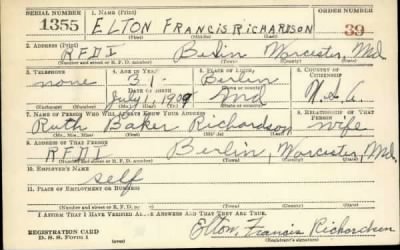 SERIAL NUMBER 1. NAME (Print) ORDER NUMBER
1355 ELTON FRANCIS RICHARDSON 39
2. ADDRESS (Print)
R.F.D.1 Berlin Worcester, Md.
(Number and street or R. F. D. number) (Town) (County) (State)
3. TELEPHONE 4. AGE IN YEARS 5. PLACE OF BIRTH 6. COUNTRY OF CITIZENSHIP
none 31 Berlin
DATE OF BIRTH
July 1, 1909 Md U.S.A.
(Exchange) (Number) (Mo.) (Day) (Yr.) (State or country)
7. NAME OF PERSON WHO WILL ALWAYS KNOW YOUR ADDRESS 8. RELATIONSHIP OF THAT PERSON
Ruth Baker Richardson wife
(Mr., Mrs., Miss) (First) (Middle) (Last)
9. ADDRESS OF THAT PERSON
R.F.D.1 Berlin, Worcester, Md.
(Number and street or R. F. D. number) (Town) (County) (State)
10. EMPLOYER'S NAME
self
11. PLACE OF EMPLOYMENT OR BUSINESS
(Number and street or R. F. D. number) (Town) (County) (State)
I AFFIRM THAT I HAVE VERIFIED ABOVE ANSWERS AND THAT THEY ARE TRUE.
REGISTRATION CARD Elton Francis Richardson
D. S. S. Form 1 (Registrant's signature)